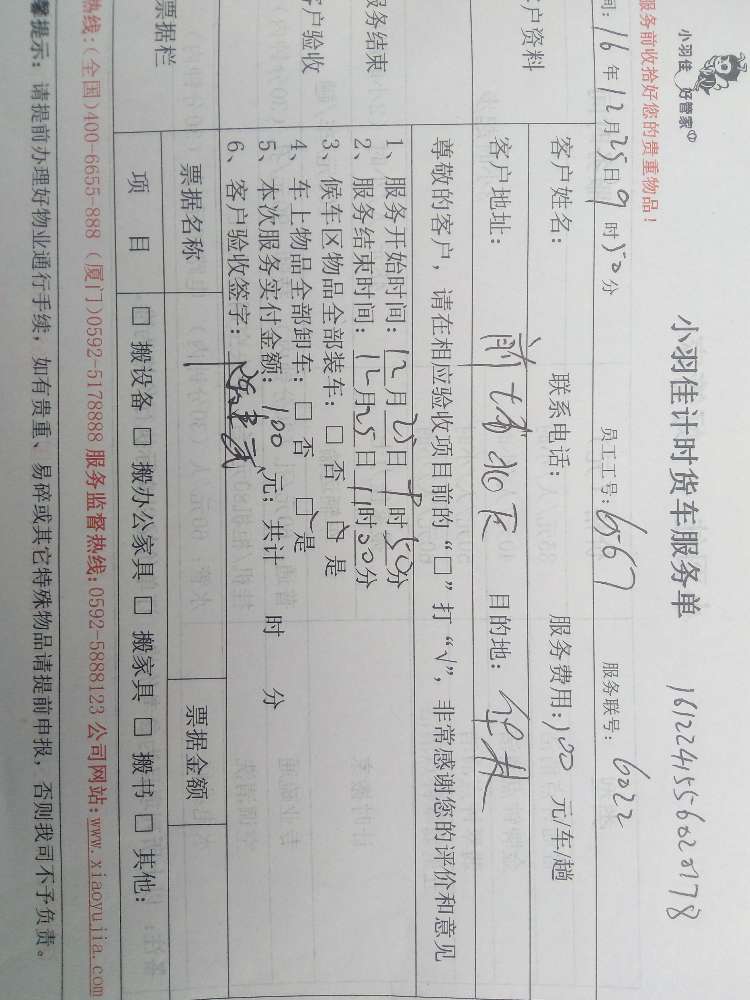 小羽佳 好管家
小羽佳计时货车服务单 161224556020178
服务前收拾好您的贵重物品！
间：16年12月25日9时50分 员工工号：6567 服务联号：6022
客户资料 客户姓名： 联系电话： 服务费用：100元/车/趟
客户地址：前埔北区 目的地：
尊敬的客户，请在相应验收项目前的“□”打“√”，非常感谢您的评价和意见
服务结束
客户验收
1、服务开始时间：12月25日9时50分
2、服务结束时间：12月25日11时30分
3、候车区物品全部装车：□ 否 ☑ 是
4、车上物品全部卸车：□ 否 ☑ 是
5、本次服务实付金额：100元；共计 时 分
6、客户验收签字：
票据栏 票据名称 票据金额
项 目 □ 搬设备 □ 搬办公家具 □ 搬家具 □ 搬书 □ 其他：
热线：(全国)400-6655-888 (厦门)0592-5178888 服务监督热线:0592-5888123 公司网站:www.xiaoyujia.com
馨提示：请提前办理好物业通行手续，如有贵重、易碎或其它特殊物品请提前申报，否则我司不予负责。